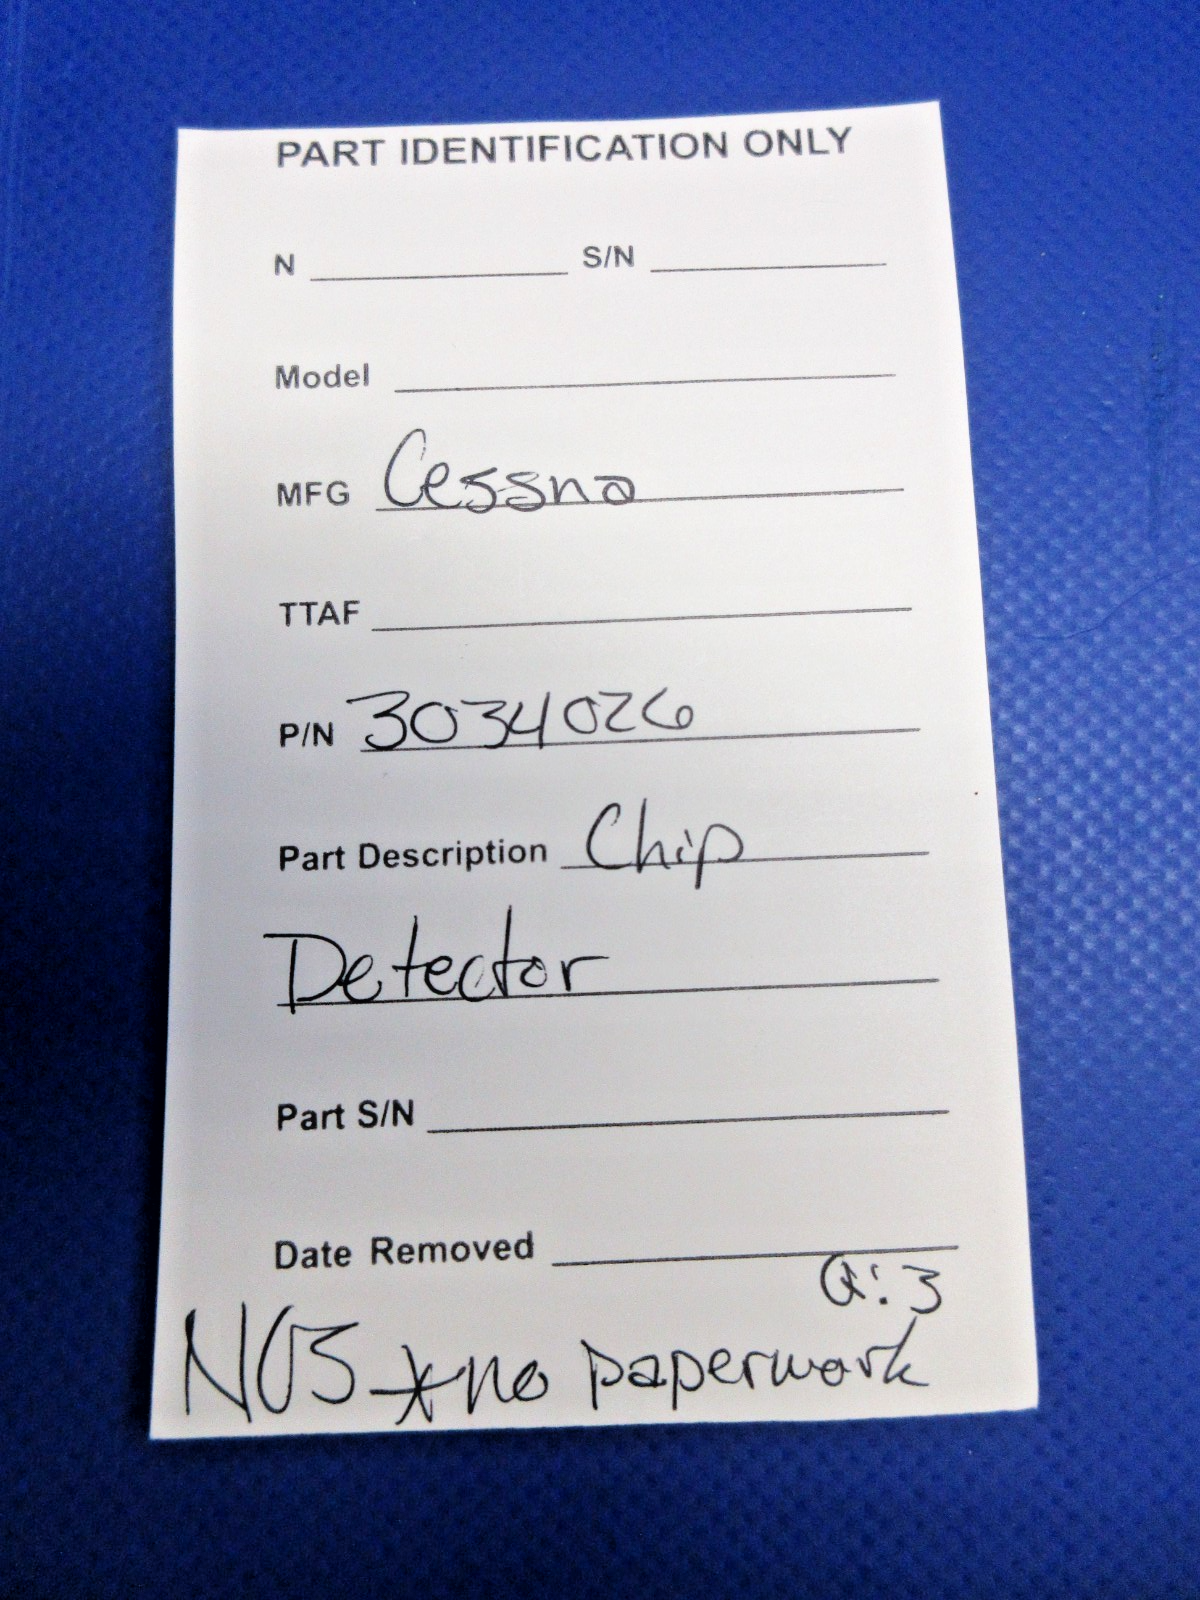 PART IDENTIFICATION ONLY
N S/N
Model
MFG Cessna
TTAF
P/N 3034026
Part Description Chip
Detector
Part S/N
Date Removed
Q: 3
NOS *no paperwork